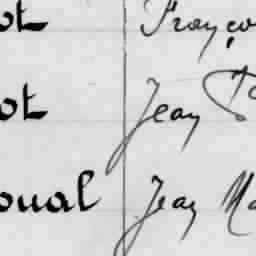 ot Franço
ot Jean
oual Jean Ma